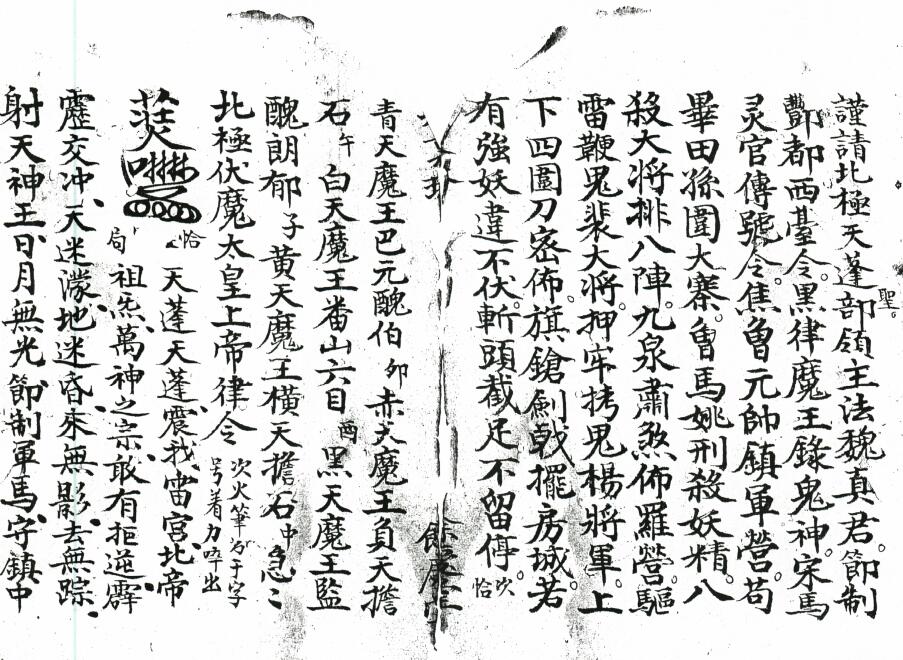 謹請北極天蓬部領主法魏真君。節制
聖。
酆都西臺令。黑律魔王錄鬼神。宋馬
灵官傳號令。焦魯元帥鎮軍營。苟
畢田孫圍大寨。魯馬姚刑殺妖精。八
殺大將排八陣。九泉肅煞佈羅營。驅
雷鞭鬼裴大將。押牢拷鬼楊將軍。上
下四圍刀密佈。旗鎗劍戟擺房城。若
有強妖違不伏。斬頭截足不留停。次恰
青天魔王巴元醜伯 卯 赤天魔王負天擔
石 午 白天魔王番山六目 酉 黑天魔王監
醜朗郁 子 黄天魔王横天擔石 中 急〻
北極伏魔太皇上帝律令 次火筆 于字号着力啐出
恰局 天蓬天蓬震我雷宮北帝
祖炁萬神之宗敢有拒逆霹
靂交冲天迷濛地迷昏來無影去無踪
射天神王日月無光節制軍馬守鎮中